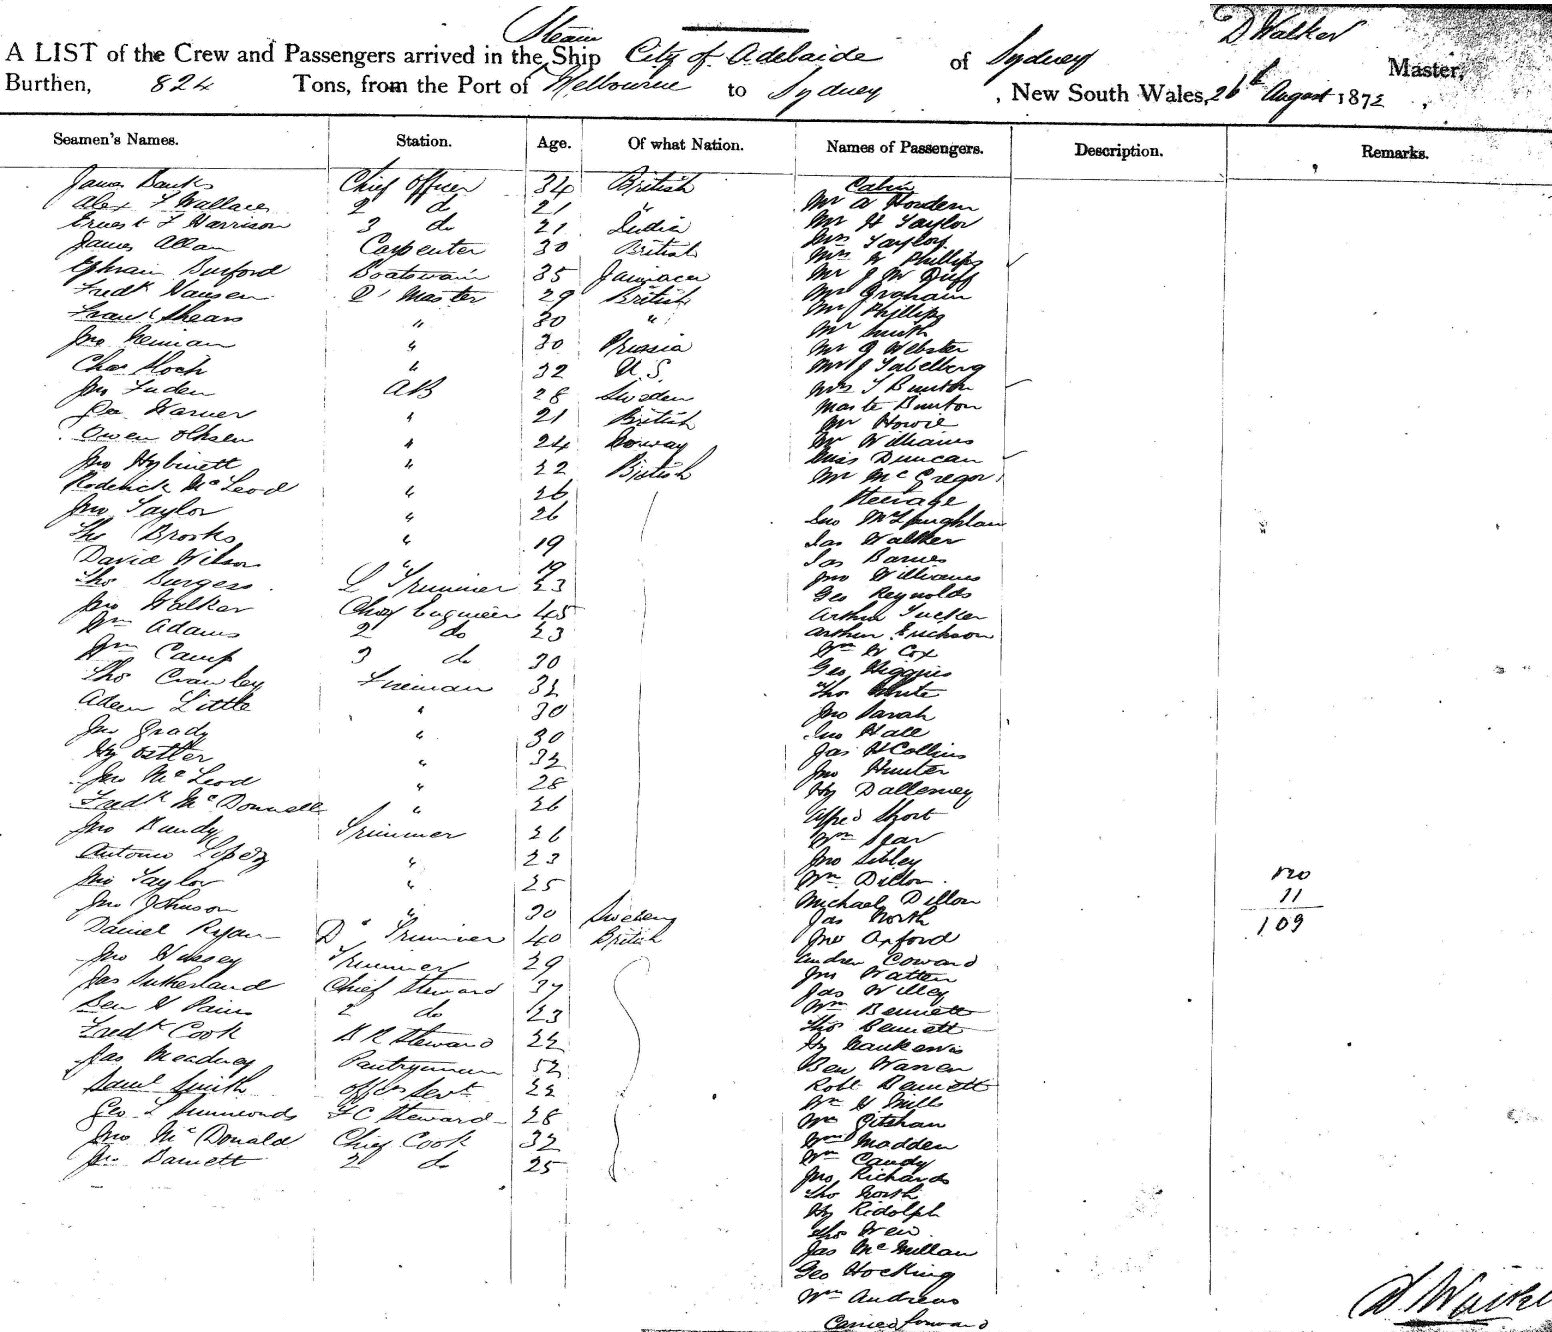 Steam
D Walker
A LIST of the Crew and Passengers arrived in the Ship City of Adelaide of Sydney Master,
Burthen, 824 Tons, from the Port of Melbourne to Sydney, New South Wales, 26th August 1872
Seamen's Names. Station. Age. Of what Nation. Names of Passengers. Description. Remarks.
James Banks Chief Officer 34 British Cabin
Alex F Wallace 2 do 21 " Mr A Hordern
Ernest F Harrison 3 do 21 India Mr H Taylor
James Allan Carpenter 30 British Mrs Taylor
Ephraim Burford Boatswain 35 Jamaica Mrs W Phillips
Fredk Hansen Q' Master 29 British Mr J W Duff
Frank Shears " 30 " Mr Graham
Jno " 30 Prussia Mr Phillips
Chas Hoch " 32 U.S. Mr Smith
Jno AB 28 Sweden Mr J Webster
Geo Warner " 21 British Mr J
Owen " 24 Norway Mrs T Bunton
Jno " 22 British Master Bunton
Roderick McLeod " 26 Mr Howie
Jno Taylor " 26 Mr Williams
Tho Brooks " 19 Miss Duncan
David Wilson " 19 Mr McGregor
Tho Burgess L Trimmer 23 Steerage
Jno Walker Chief Engineer 45 Jno McLaughlan
Wm Adams 2 do 23 Jas Walker
Wm Camp 3 do 30 Jas Barnes
Tho Crawley Fireman 32 Jno Williams
Adam Little " 30 Geo Reynolds
Jno Grady " 30 Arthur Tucker
Hy Ostler " 32 Arthur Erickson
Jno McLeod " 28 Wm W Cox
Fredk McDonnell " 26 Geo Higgins
Jno Bandy Trimmer 26 Tho White
Antonio Lopez " 23 Jno Sarah
Jno Taylor " 25 Jno Hall
Jno Johnson " 30 Sweden Jas H Collins
Daniel Ryan D" Trimmer 40 British Jno Hunter
Jno Trimmer 29 Hy
Jas Sutherland Chief Steward 37 Alfred Short
Ben 2 do 23 Wm Sear
Fredk Cook B R Steward 22 Jno Sibley
Jas Meadway Pantryman 52 Wm Dillon
Saml Smith Offrs Servt 22 Michael Dillon
Geo L Simmonds F C Steward 28 Jas North
Jno McDonald Chief Cook 32 Jno Oxford
Jno Barnett 2 do 25 Andrew Coward
Jno
Jas Willey
Wm Bennett
Tho Bennett
Hy
Ben Warren
Robt Bennett
Wm G Mills
Wm
Wm Madden
Wm Candy
Jno Richards
Tho North
Hy Ridolph
Tho Weir
Jas McMillan
Geo Hocking
Wm Andrews
Carried forward
120
11
109
D Walker